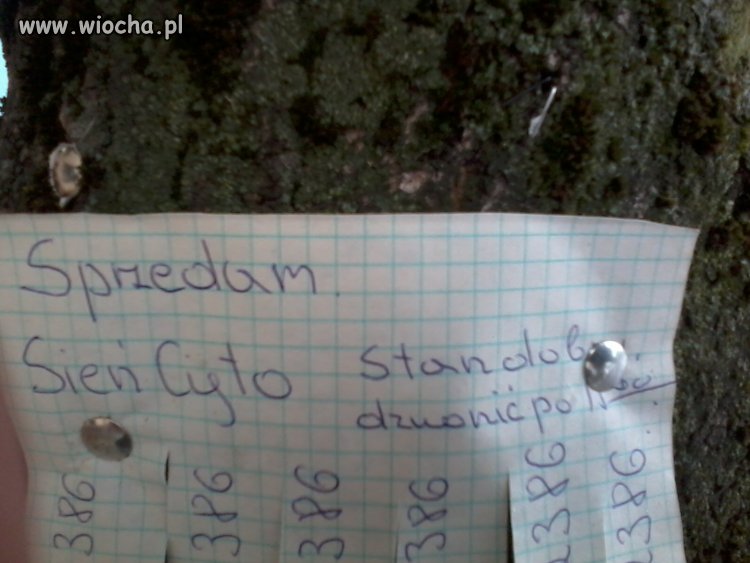 www.wiocha.pl
Sprzedam.
Sień Cyto
Stan dob
dzwonić po
386
386
386
386
2386
2386